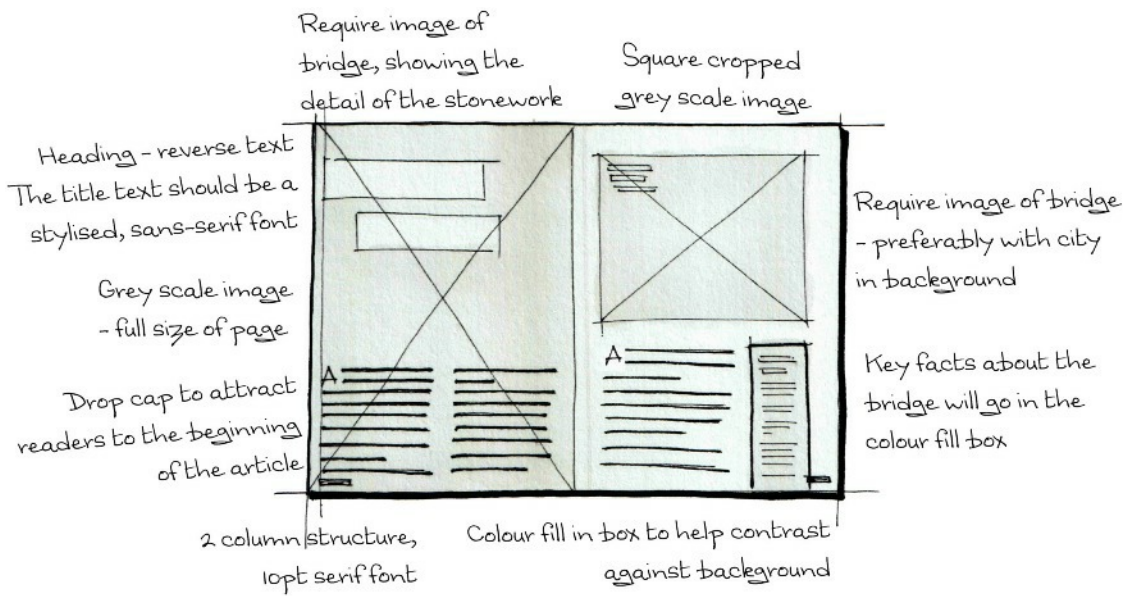 Require image of
bridge, showing the
detail of the stonework
Square cropped
grey scale image
Heading - reverse text
The title text should be a
stylised, sans-serif font
Grey scale image
- full size of page
Drop cap to attract
readers to the beginning
of the article
A
A
Require image of bridge
- preferably with city
in background
Key facts about the
bridge will go in the
colour fill box
2 column structure,
10pt serif font
Colour fill in box to help contrast
against background